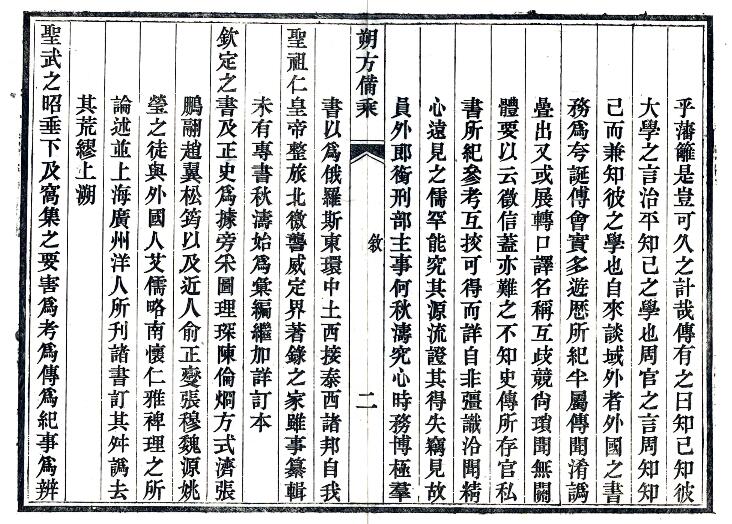 乎藩籬是豈可久之計哉傳有之曰知己知彼
大學之言治平知己之學也周官之言周知知
己而兼知彼之學也自來談域外者外國之書
務爲夸誕傅會實多遊歷所紀半屬傳聞淆譌
疊出又或展轉口譯名稱互歧競尙瑣聞無關
體要以云徵信蓋亦難之不知史傳所存官私
書所紀參考互挍可得而詳自非彊識洽聞精
心遠見之儒罕能究其源流證其得失竊見故
員外郎銜刑部主事何秋濤究心時務博極羣
朔方備乘
敘
二
書以爲俄羅斯東環中土西接泰西諸邦自我
聖祖仁皇帝整旅北徼讋威定界著錄之家雖事纂輯
未有專書秋濤始爲彙編繼加詳訂本
欽定之書及正史爲據旁采圖理琛陳倫炯方式濟張
鵬翮趙翼松筠以及近人俞正燮張穆魏源姚
瑩之徒與外國人艾儒略南懷仁雅裨理之所
論述並上海廣州洋人所刊諸書訂其舛譌去
其荒繆上溯
聖武之昭垂下及窩集之要害爲考爲傳爲紀事爲辨